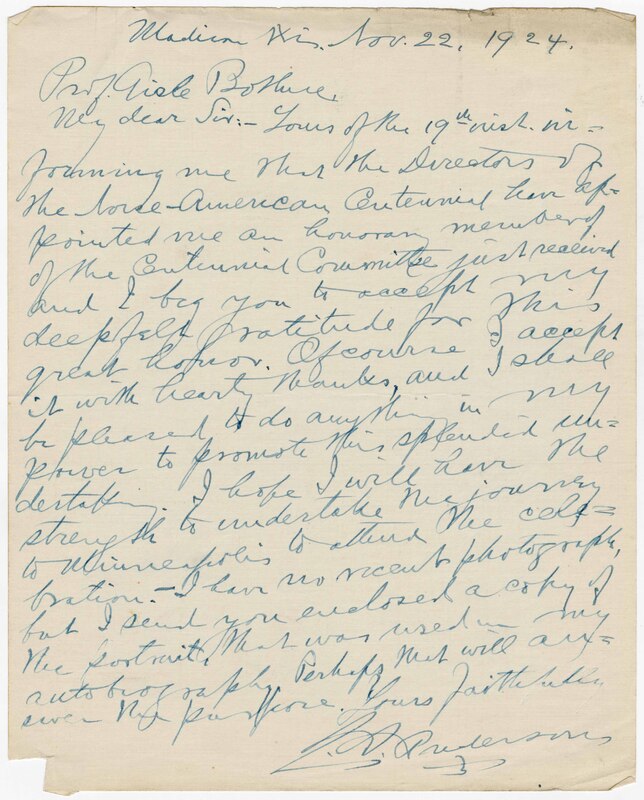 Madison Wis. Nov. 22, 1924.
Prof. Gisle Bothne,
My dear Sir:- Yours of the 19th inst. in=
forming me that the Directors of
the Norse-American Centennial have ap=
pointed me an honorary member of
of the Centennial Committee just received
and I beg you to accept my
deepfelt gratitude for this
great honor. Of course I accept
it with hearty thanks, and I shall
be pleased to do anything in my
power to promote this splendid un=
dertaking. I hope I will have the
strength to undertake the journey
to Minneapolis to attend the cele=
bration. - I have no recent photograph,
but I send you enclosed a copy of
the portrait, that was used in my
autobiography. Perhaps that will an=
swer the purpose. Yours faithfully
R. B. Anderson